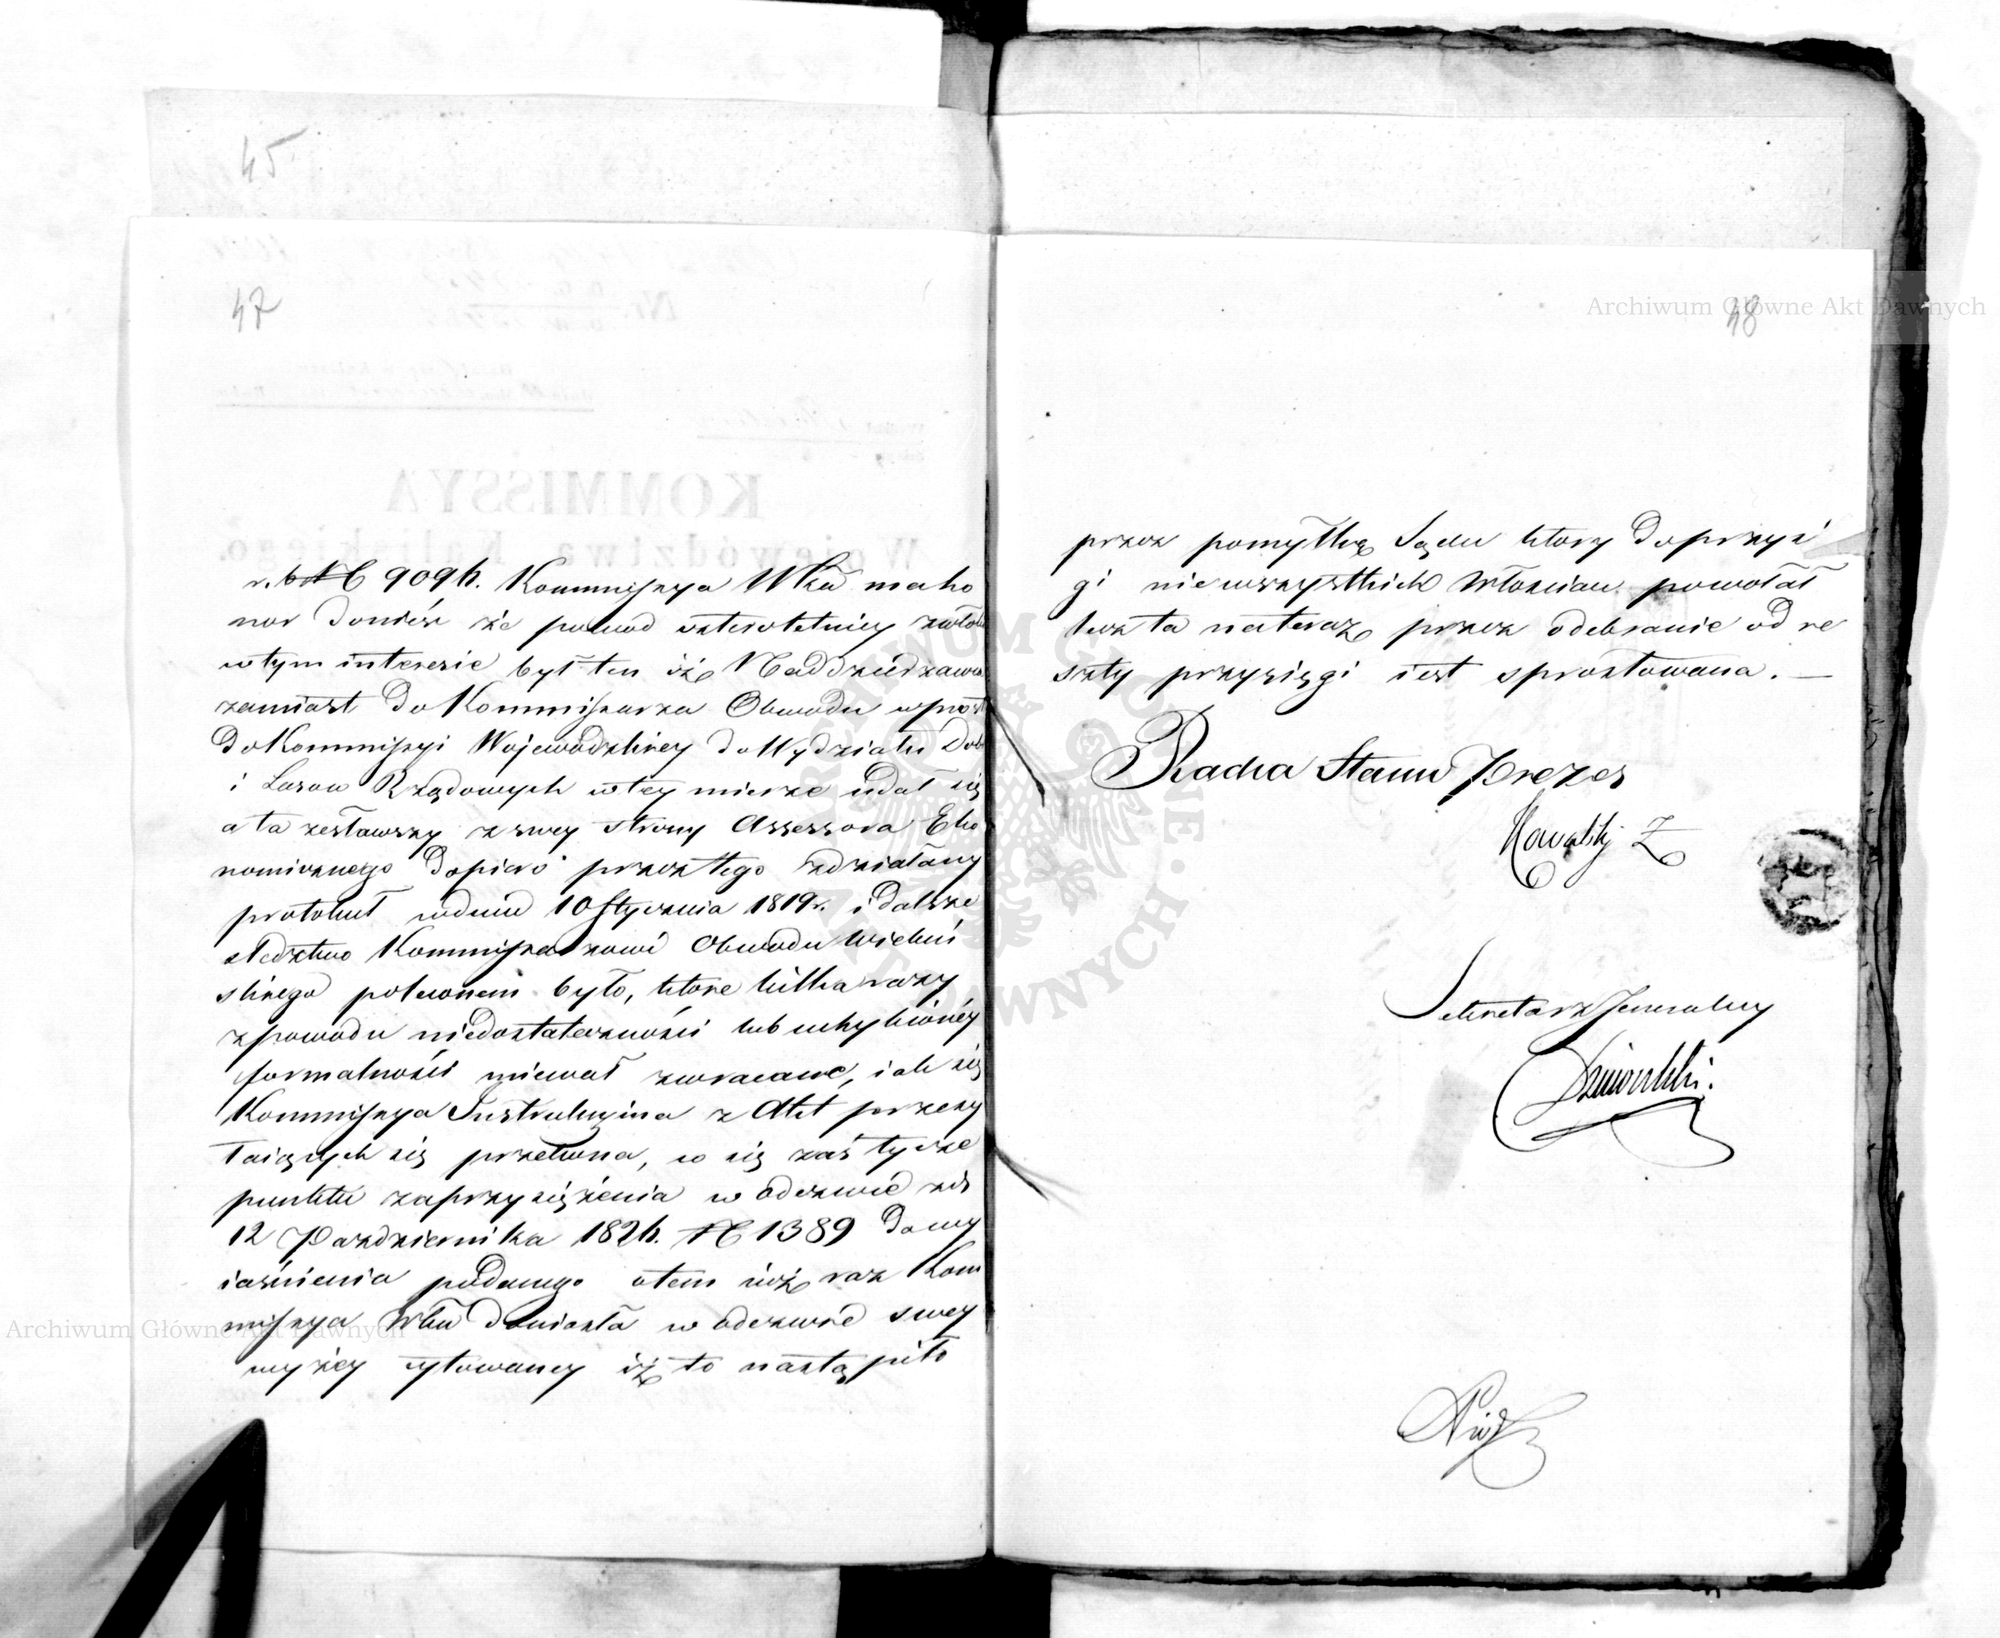 45
47
r. b. № 9094. Kommissya Wka ma ho
nor donieść że powod czteroletniey zwłoki
w tym interesie był ten iż Naddzierżawca
zamiast do Kommissarza Obwodu wprost
do Kommissyi Wojewódzkiey do Wydziału Dobr
i Lasow Rządowych w tey mierze udał się
a ta zesławszy z swey strony Assessora Eko
nomicznego dopiero przez tego zdziałany
protokuł w dniu 10 Stycznia 1819 r. i dalsze
śledztwo Kommissarzowi Obwodu Wieluń
skiego poleconem było, które kilka razy
z powodu niedostateczności lub uchybionéy
formalności miewał zwracane, iak się
Kommissya Instrukcyina z Akt przesy
łaiących się przekona, co się zaś tycze
punktu zaprzysiężenia w odezwie zdr
12 Października 1824. № 1389 do wy
iaśnienia podanego o tem iuż raz Kom
missya Wka doniosła w odezwie swey
wyżey cytowaney iż to nastąpiło
48
przez pomyłkę Sądu który do przysię
gi nie wszystkich Włościan powołał
lecz ta na teraz przez odebranie od re
szty przysięgi iest sprostowana. —
Radca Stanu Prezes
Sekretarz Jeneralny
KOMMISSYA
Województwa Kaliskiego.
Archiwum Główne Akt Dawnych
Archiwum Główne Akt Dawnych
ARCHIWUM GŁÓWNE AKT DAWNYCH